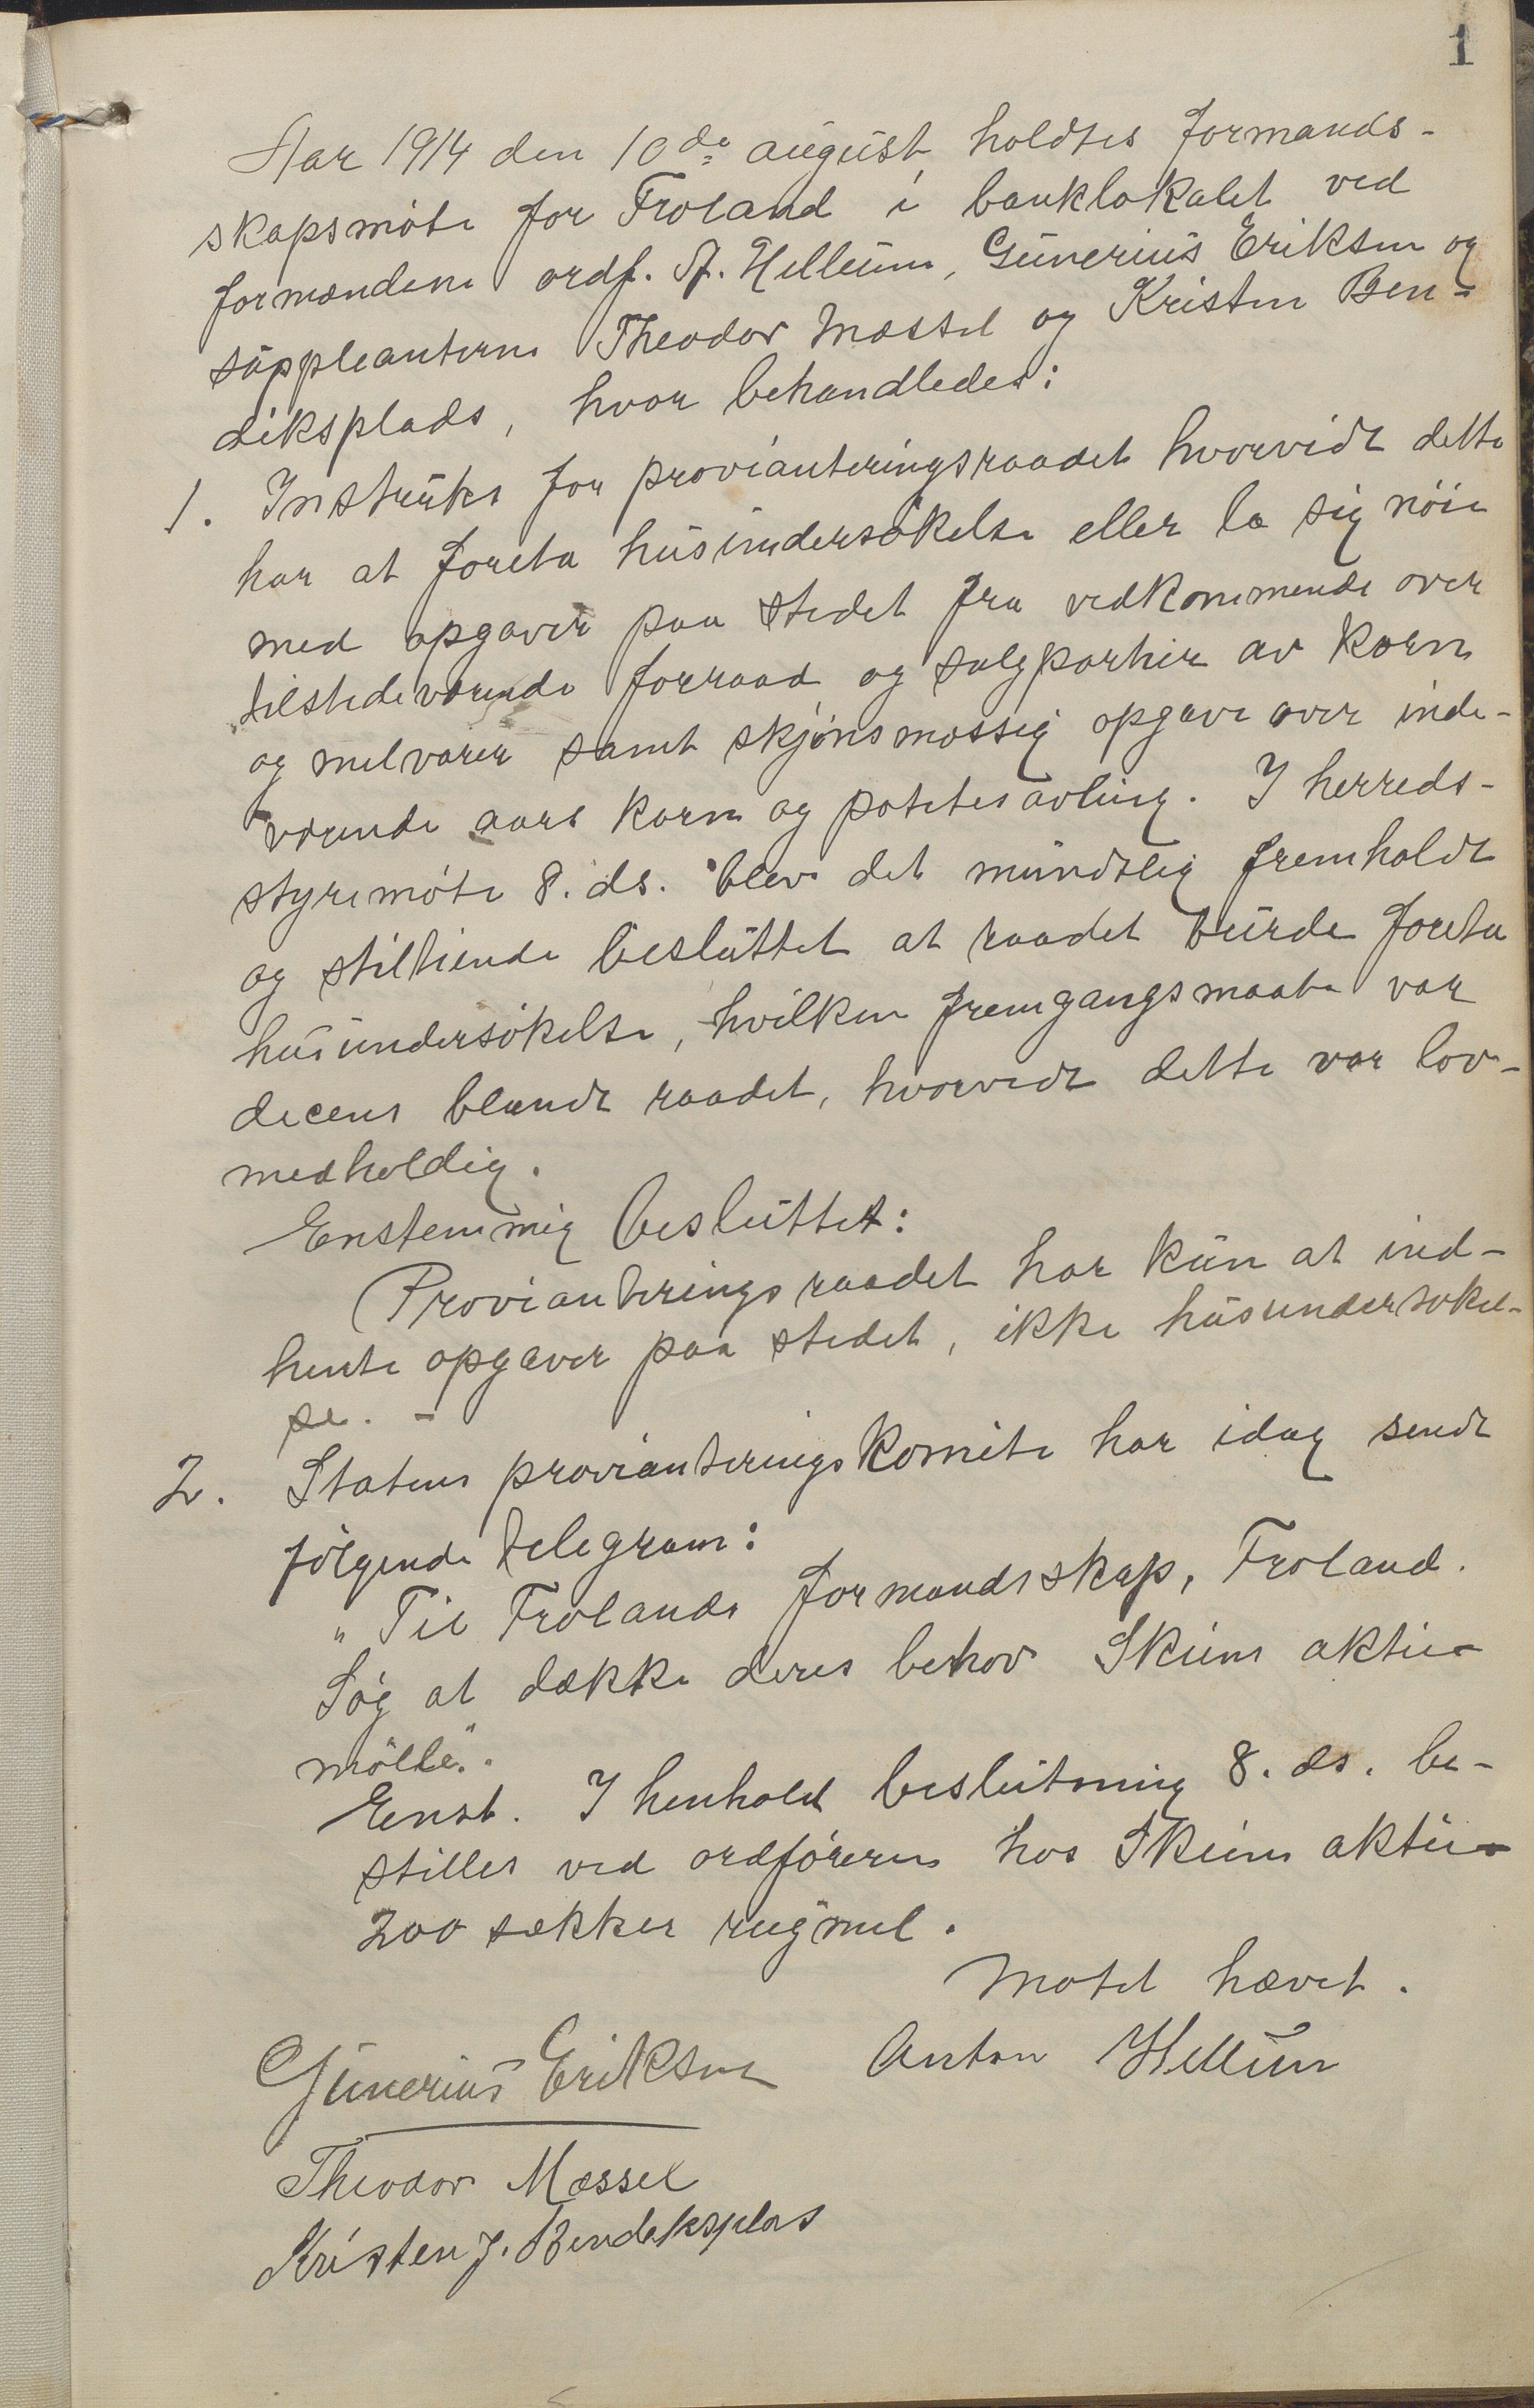 1
Aar 1914 den 10de august holdtes formands-
skapsmöte for Froland i banklokalet ved
formændene ordf. A. Hellum, Gunerius Eriksen og
suppleanterne Theodor Mæssel og Kristen Ben-
diksplads, hvor behandledes:
1. Instruks for provianteringsraadet hvorvidt dette
har at foreta husundersökelse eller la sig nöie
med opgaver paa stedet fra vedkommende over
tilstedeværende forraad og salgpartier av korn
og melvarer samt skjönsmæssig opgave over inde-
værende aars korn og potetesavling. I herreds-
styremöte 8. ds. blev det mundtlig fremholdt
og stiltiende besluttet at raadet burde foreta
husundersökelse, hvilken fremgangsmaate var
decens blandt raadet, hvorvidt dette var lov-
medholdig.
Enstemmig besluttet:
Provianteringsraadet har kun at ind-
hente opgaver paa stedet, ikke husundersökel-
se. -
2. Statens provianteringskomite har idag sendt
fölgende telegram:
"Til Frolands formandsskap, Froland.
Sög at dække deres behov Skiens aktie-
mölle".
Enst. I henhold beslutning 8. ds. be-
stilles ved ordföreren hos Skiens aktie-
200 sækker rugmel.
Mötet hævet.
Gunerius Eriksen Anton Hellum
Theodor Mæssel
Kristen J. Bendiksplas